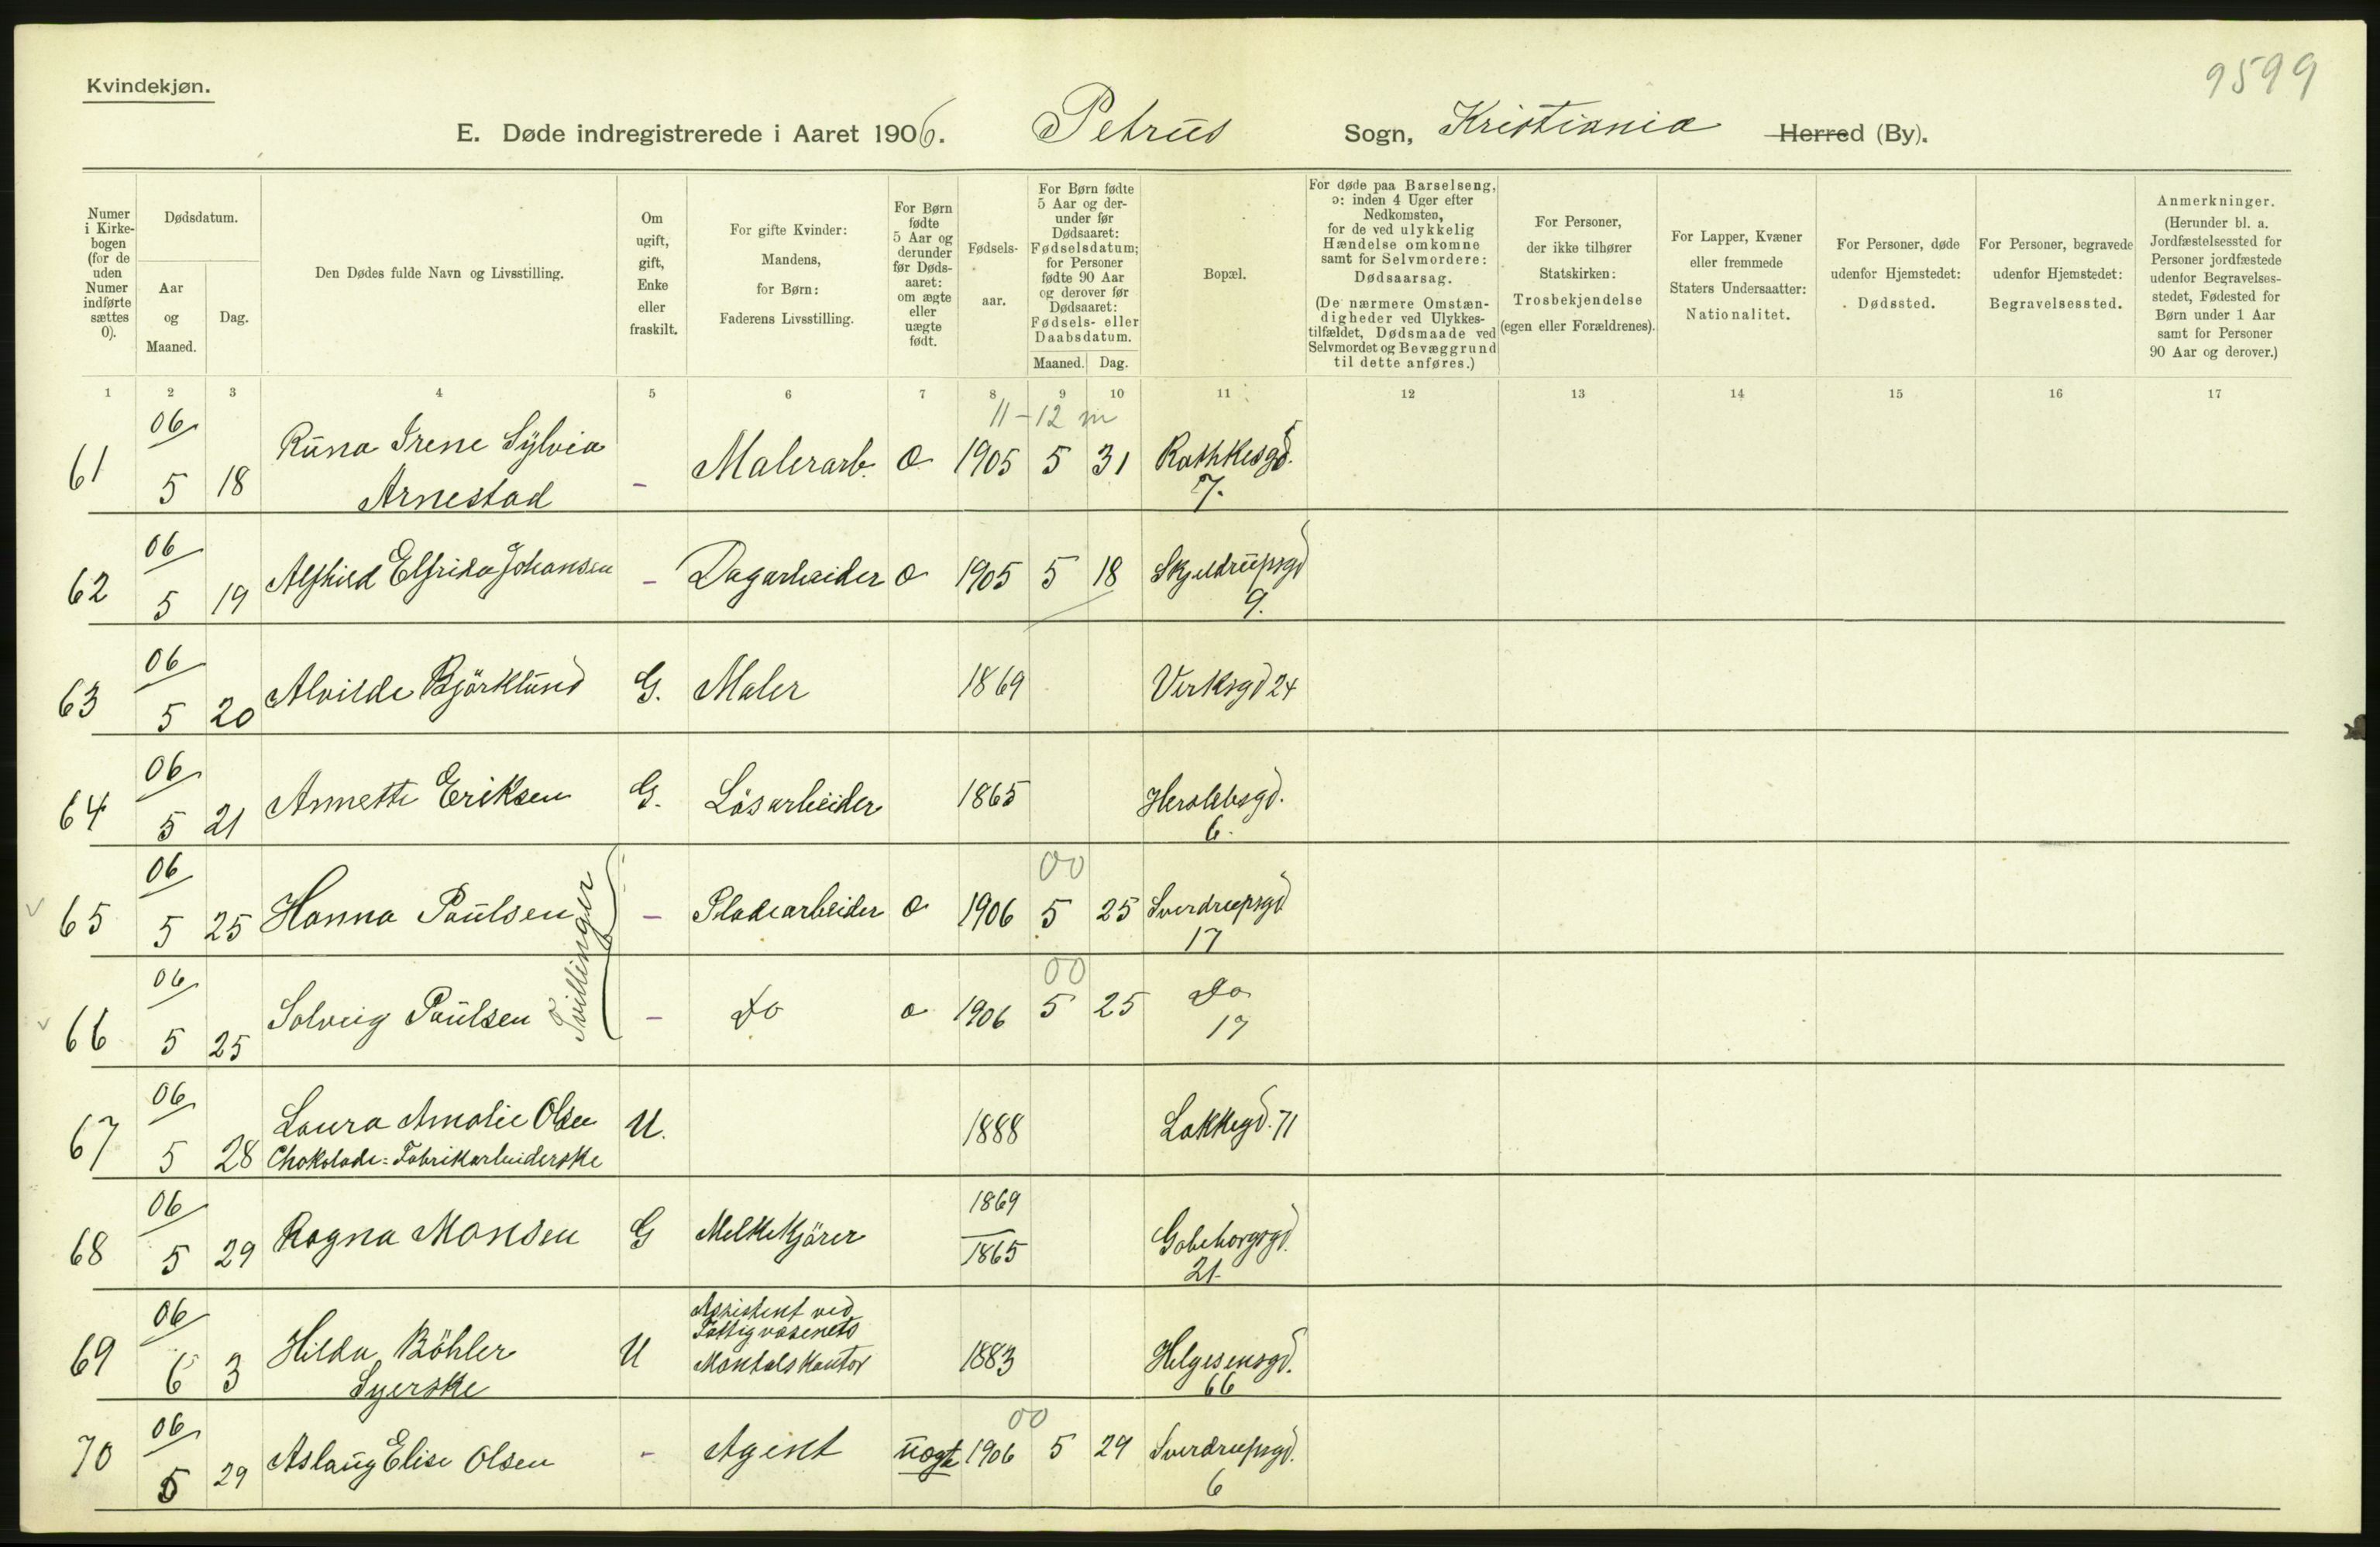 9599
Kvindekjøn.
E. Døde indregistrerede i Aaret 1906. Petrus Sogn, Kristiania Herred (By).
Numer i Kirkebogen (for de uden Numer indførte sættes 0).
Dødsdatum.
Aar og Maaned.
Dag.
Den Dødes fulde Navn og Livsstilling.
Om ugift, gift, Enke eller fraskilt.
For gifte Kvinder: Mandens, for Børn: Faderens Livsstilling.
For Børn fødte 5 Aar og derunder før Dødsaaret: om ægte eller uægte født.
Fødselsaar.
For Børn fødte 5 Aar og derunder før Dødsaaret: Fødselsdatum; for Personer fødte 90 Aar og derover før Dødsaaret: Fødsels- eller Daabsdatum.
Maaned. Dag.
Bopæl.
For døde paa Barselseng, ɔ: inden 4 Uger efter Nedkomsten, for de ved ulykkelig Hændelse omkomne samt for Selvmordere: Dødsaarsag. (De nærmere Omstændigheder ved Ulykkestilfældet, Dødsmaade ved Selvmordet og Bevæggrund til dette anføres.)
For Personer, der ikke tilhører Statskirken: Trosbekjendelse (egen eller Forældrenes).
For Lapper, Kvæner eller fremmede Staters Undersaatter: Nationalitet.
For Personer, døde udenfor Hjemstedet: Dødssted.
For Personer, begravede udenfor Hjemstedet: Begravelsessted.
Anmerkninger. (Herunder bl. a. Jordfæstelsessted for Personer jordfæstede udenfor Begravelsesstedet, Fødested for Børn under 1 Aar samt for Personer 90 Aar og derover.)
1 2 3 4 5 6 7 8 9 10 11 12 13 14 15 16 17
11-12 m
61 06/5 18 Runa Irene Sylvia Arnestad - Malerarb. 1905 5 31 Rathkesgd. 7.
62 06/5 19 Alfhild Elfrida Johansen - Dagarbeider 1905 5 18 Skjeldrupsgd 9.
63 06/5 20 Alvilde Björklund G. Maler 1869 Verksgd 24
64 06/5 21 Annette Eriksen G. Lösarbeider 1865 Herslebsgd. 6.
00
65 06/5 25 Hanna Paulsen - Pladearbeider 1906 5 25 Sverdrupsgd 17
Tvillinger
00
66 06/5 25 Solveig Paulsen - do 1906 5 25 Do 17
67 06/5 28 Laura Amalie Olsen U. 1888 Lakkegd. 71
Chokolade-Fabrikarbeiderske
68 06/5 29 Ragna Monsen G Melkekjörer 1869/1865 Gøteborgsgd. 21
69 06/6 3 Hilda Böhler Syerske U Assistent ved Fattigvæsenets Mantalskontor 1883 Helgesensgd. 66
00
70 06/5 29 Aslaug Elise Olsen - Agent uægte 1906 5 29 Sverdrupsgd. 6